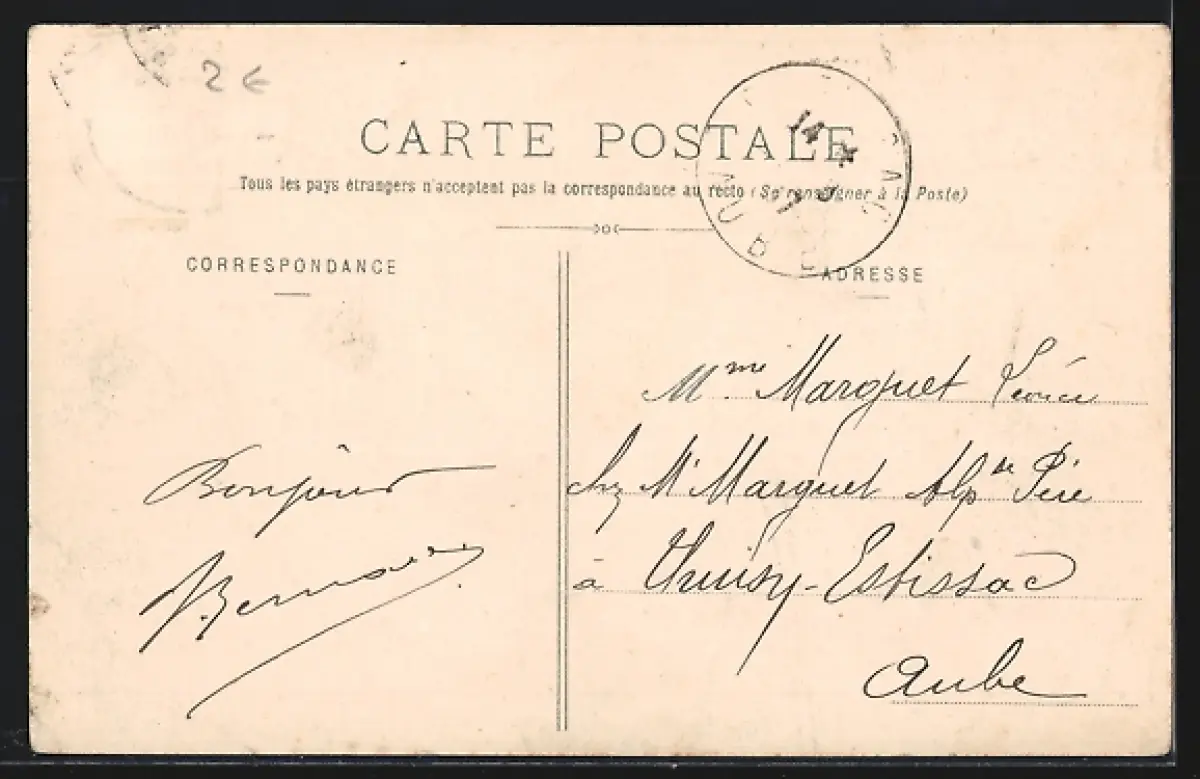 2 €
CARTE POSTALE
Tous les pays étrangers n'acceptent pas la correspondance au recto (Se renseigner à la Poste)
CORRESPONDANCE
Bonjour
ADRESSE
14
AUBE
Mme Marquet
chez Mr Marquet Alp Père
à Thuisy-Estissac
Aube